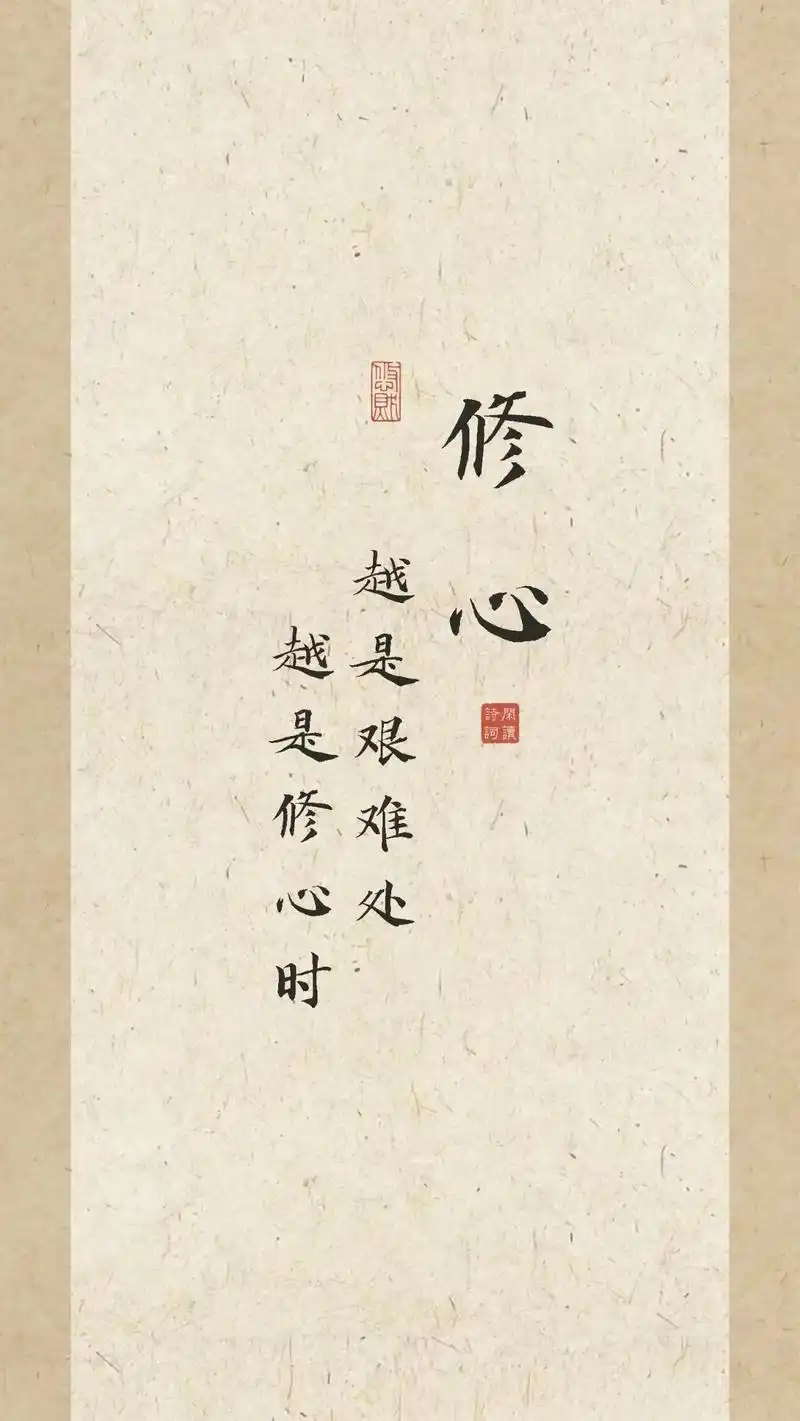 修心
閑讀詩詞
越是艰难处
越是修心时